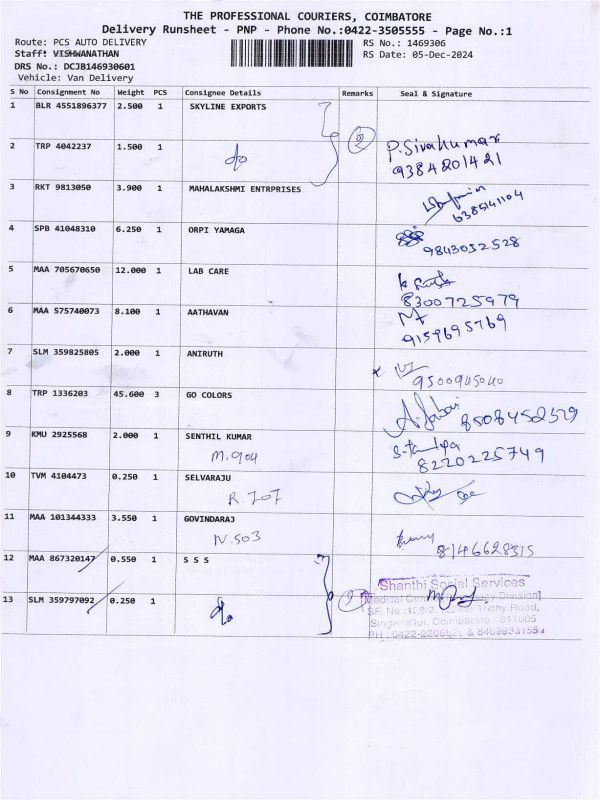 THE PROFESSIONAL COURIERS, COIMBATORE
Delivery Runsheet - PNP - Phone No.:0422-3505555 - Page No.:1
Route: PCS AUTO DELIVERY RS No.: 1469306
Staff: VISHWANATHAN RS Date: 05-Dec-2024
DRS No.: DCJB146930601
Vehicle: Van Delivery
S No Consignment No Weight PCS Consignee Details Remarks Seal & Signature
1 BLR 4551896377 2.500 1 SKYLINE EXPORTS
2 TRP 4042237 1.500 1 do 2 P. Sivakumar
9384201421
3 RKT 9813050 3.900 1 MAHALAKSHMI ENTRPRISES
6385141104
4 SPB 41048310 6.250 1 ORPI YAMAGA
9843052528
5 MAA 705670650 12.000 1 LAB CARE
8300725979
6 MAA 575740073 8.100 1 AATHAVAN
9159695769
7 SLM 359825805 2.000 1 ANIRUTH
9500945040
8 TRP 1336203 45.600 3 GO COLORS
8508452529
9 KMU 2925568 2.000 1 SENTHIL KUMAR
M.904 8220225749
10 TVM 4104473 0.250 1 SELVARAJU
R.707
11 MAA 101344333 3.550 1 GOVINDARAJ
N.503 8146628315
12 MAA 867320147 0.550 1 S S S
Shanthi Social Services
13 SLM 359797092 0.250 1 do
Singanallur, Coimbatore